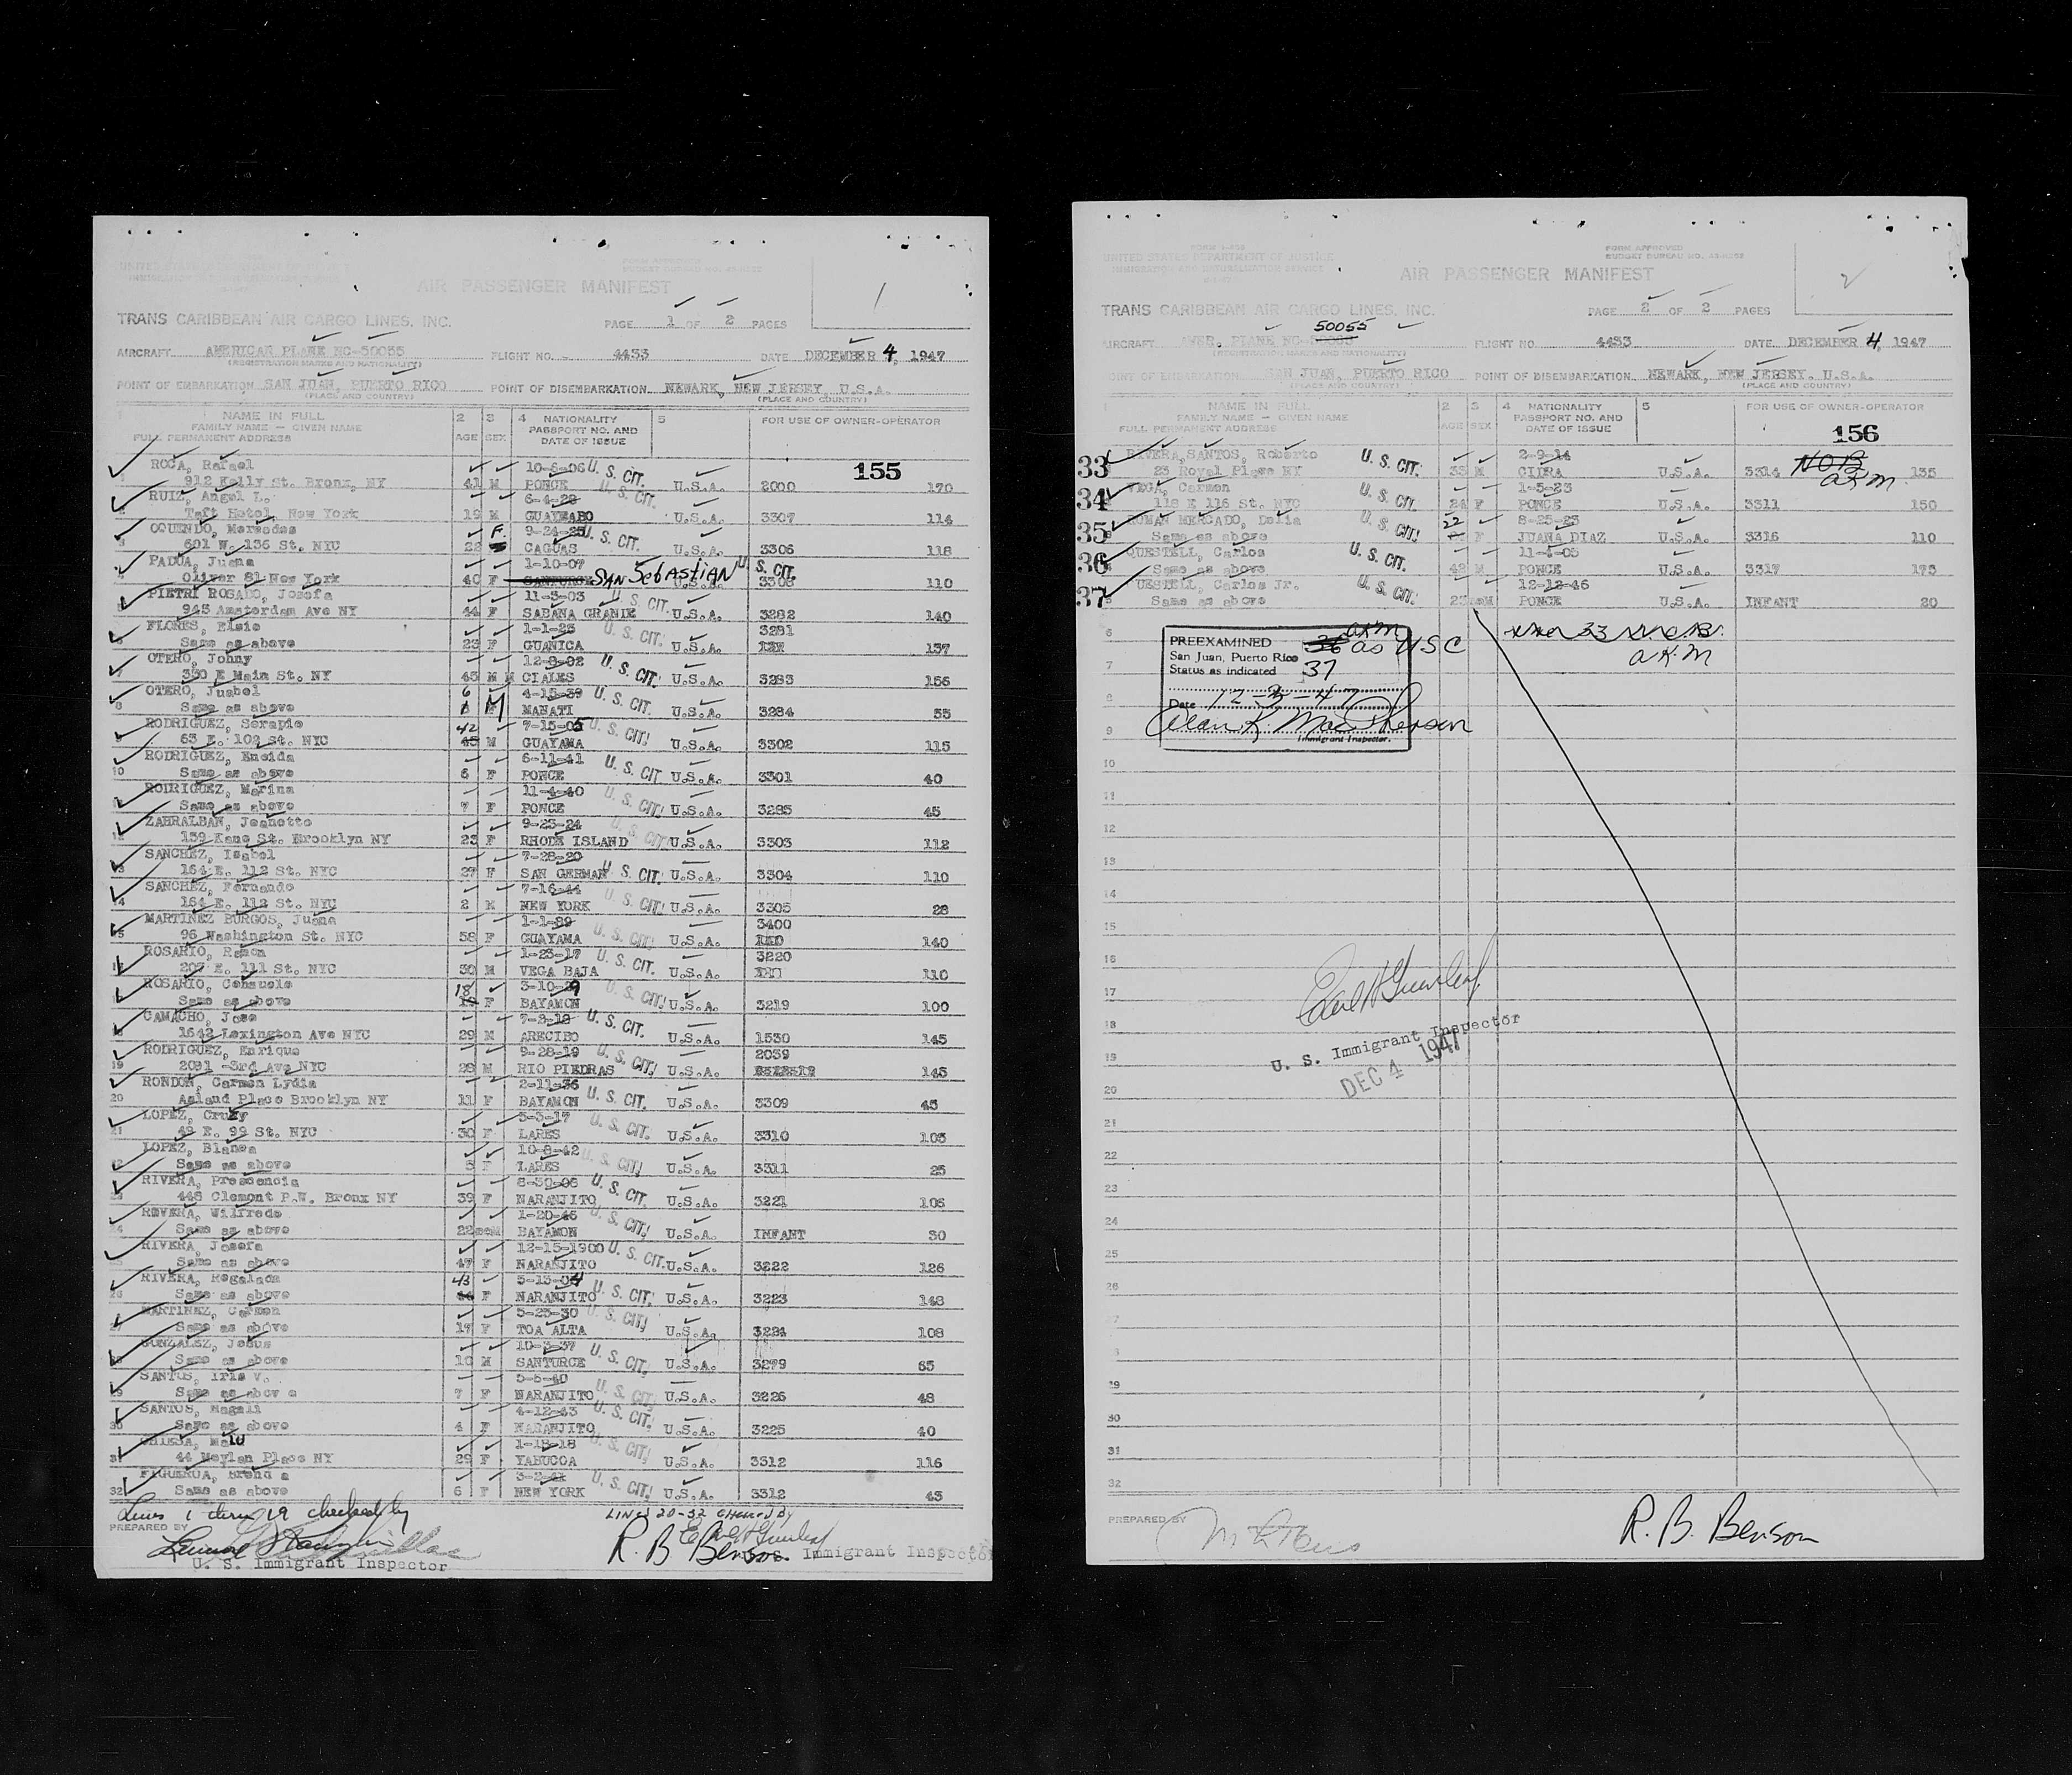 UNITED STATES DEPARTMENT OF JUSTICE
FORM APPROVED
BUDGET BUREAU NO.
AIR PASSENGER MANIFEST
1
TRANS CARIBBEAN AIR CARGO LINES, INC.
PAGE 1 OF 2 PAGES
AIRCRAFT AMERICAN PLANE NC-50055 FLIGHT NO. 4433 DATE DECEMBER 4, 1947
(REGISTRATION MARKS AND NATIONALITY)
POINT OF EMBARKATION SAN JUAN, PUERTO RICO POINT OF DISEMBARKATION NEWARK, NEW JERSEY, U.S.A.
(PLACE AND COUNTRY) (PLACE AND COUNTRY)
NAME IN FULL 2 3 4 NATIONALITY 5 FOR USE OF OWNER-OPERATOR
FAMILY NAME — GIVEN NAME AGE SEX PASSPORT NO. AND
FULL PERMANENT ADDRESS DATE OF ISSUE
155
ROCA, Rafael 10-6-06 U. S. CIT.
912 Kelly St. Bronx, NY 41 M PONCE U.S.A. 2000 170
RUIZ, Angel L. 6-4-28 U. S. CIT.
Taft Hotel New York 19 M GUAYNABO U.S.A. 3307 114
OQUENDO, Mercedes F. 9-24-25 U. S. CIT.
601 W. 136 St. NYC 22 CAGUAS U.S.A. 3306 118
PADUA, Juana 1-10-07 U. S. CIT.
Oliver 81 New York 40 F SANTURCE SAN SEBASTIAN U.S.A. 3308 110
PIETRI ROSADO, Josefa 11-3-03 U. S. CIT.
945 Amsterdam Ave NY 44 F SABANA GRANDE U.S.A. 3282 140
FLORES, Elsie 1-1-25 U. S. CIT. 3281
Same as above 23 F GUANICA U.S.A. 137
OTERO, Johny 12-8-02 U. S. CIT.
330 E Main St. NY 45 M CIALES U.S.A. 3283 156
OTERO, Jusbel 6 4-15-39 U. S. CIT.
Same as above M MANATI U.S.A. 3284 55
RODRIGUEZ, Serapio 42 7-15-05 U. S. CIT.
63 E. 102 St. NYC 45 M GUAYAMA U.S.A. 3302 115
RODRIGUEZ, Eneida 6-11-41 U. S. CIT
10 Same as above 6 F PONCE U.S.A. 3301 40
RODRIGUEZ, Marina 11-4-40 U. S. CIT.
Same as above 7 F PONCE U.S.A. 3285 45
ZAHRALBAN, Jeanette 9-23-24 U. S. CIT.
12 159 Kane St. Brooklyn NY 23 F RHODE ISLAND U.S.A. 3303 112
SANCHEZ, Isabel 7-28-20
164 E. 112 St. NYC 27 F SAN GERMAN U. S. CIT. U.S.A. 3304 110
SANCHEZ, Fernando 7-16-44
14 164 E. 112 St. NYC 2 M NEW YORK U. S. CIT. U.S.A. 3305 28
MARTINEZ BURGOS, Juana 1-1-89 3400
96 Washington St. NYC 58 F GUAYAMA U. S. CIT. U.S.A. 140
ROSARIO, Ramon 1-23-17 3220
207 E. 111 St. NYC 30 M VEGA BAJA U. S. CIT. U.S.A. 110
ROSARIO, Consuelo 18 3-10-29
Same as above F BAYAMON U. S. CIT. U.S.A. 3219 100
CAMACHO, Jose 7-2-18 U. S. CIT.
1642 Lexington Ave NYC 29 M ARECIBO U.S.A. 1530 145
RODRIGUEZ, Enrique 9-28-19 U. S. CIT. 2059
19 2091 -3rd Ave NYC 28 M RIO PIEDRAS U.S.A. 145
RONDON, Carmen Lydia 2-11-36
20 Ashland Place Brooklyn NY 11 F BAYAMON U. S. CIT. U.S.A. 3309 45
LOPEZ, Cruzy 5-3-17 U. S. CIT.
21 49 E. 99 St. NYC 30 F LARES U.S.A. 3310 105
LOPEZ, Blanca 10-8-42 U. S. CIT.
Same as above 5 F LARES U.S.A. 3311 25
RIVERA, Presencia 8-30-08 U. S. CIT.
448 Clemont P.W. Bronx NY 39 F NARANJITO U.S.A. 3221 105
RIVERA, Wilfredo 1-20-46 U. S. CIT.
Same as above 22 BAYAMON U.S.A. INFANT 30
RIVERA, Josefa 12-15-1900 U. S. CIT.
Same as above 47 F NARANJITO U.S.A. 3222 126
RIVERA, Regalada 43 5-13-04 U. S. CIT.
26 Same as above F NARANJITO U.S.A. 3223 148
MARTINEZ, Carmen 5-25-30 U. S. CIT.
27 Same as above 17 F TOA ALTA U.S.A. 3224 108
GONZALEZ, Jesus 10-3-37 U. S. CIT.
Same as above 10 M SANTURCE U.S.A. 3279 65
SANTOS, Iris V. 5-6-40 U. S. CIT.
29 Same as above 7 F NARANJITO U.S.A. 3226 48
SANTOS, Magali 4-12-43 U. S. CIT.
30 Same as above 4 F NARANJITO U.S.A. 3225 40
1-18-18 U. S. CIT.
44 Meylan Place NY 29 F YABUCOA U.S.A. 3312 116
FIGUEROA, Brenda 3-2-41 U. S. CIT.
32 Same as above 6 F NEW YORK U.S.A. 3312 43
Lines 1 thru 19 checked by LINES 20-32 CHECKED BY
PREPARED BY
R. B. Benson
U. S. Immigrant Inspector Immigrant Inspector
UNITED STATES DEPARTMENT OF JUSTICE
IMMIGRATION AND NATURALIZATION SERVICE
FORM APPROVED
BUDGET BUREAU NO.
AIR PASSENGER MANIFEST
2
TRANS CARIBBEAN AIR CARGO LINES, INC.
PAGE 2 OF 2 PAGES
50055
AIRCRAFT AMER. PLANE NC- FLIGHT NO 4433 DATE DECEMBER 4, 1947
(REGISTRATION MARKS AND NATIONALITY)
POINT OF EMBARKATION SAN JUAN, PUERTO RICO POINT OF DISEMBARKATION NEWARK, NEW JERSEY, U.S.A.
(PLACE AND COUNTRY) (PLACE AND COUNTRY)
NAME IN FULL 2 3 4 NATIONALITY 5 FOR USE OF OWNER-OPERATOR
FAMILY NAME — GIVEN NAME AGE SEX PASSPORT NO. AND
FULL PERMANENT ADDRESS DATE OF ISSUE
156
33 RIVERA, SANTOS, Roberto U. S. CIT. 2-9-14 NOB
23 Royal Place NY 33 M CIDRA U.S.A. 3314 A.K.M. 135
34 VEGA, Carmen U. S. CIT. 1-5-23
118 E 116 St. NYC 24 F PONCE U.S.A. 3311 150
35 ROMAN MERCADO, Delia U. S. CIT. 22 8-25-25
Same as above F JUANA DIAZ U.S.A. 3316 110
36 QUESTELL, Carlos U. S. CIT. 11-4-05
Same as above 42 M PONCE U.S.A. 3317 175
37 QUESTELL, Carlos Jr. U. S. CIT. 12-12-46
Same as above PONCE U.S.A. INFANT 20
6
PREEXAMINED 36 as USC
AKM
San Juan, Puerto Rico
Status as indicated 37
Date 12-3-47
Alan K. MacPherson
Immigrant Inspector.
A.K.M
7
8
9
10
11
12
13
14
15
16
17
18
19
20
21
22
23
24
25
26
27
29
30
31
32
U. S. Immigrant Inspector
DEC 4 1947
PREPARED BY
R. B. Benson